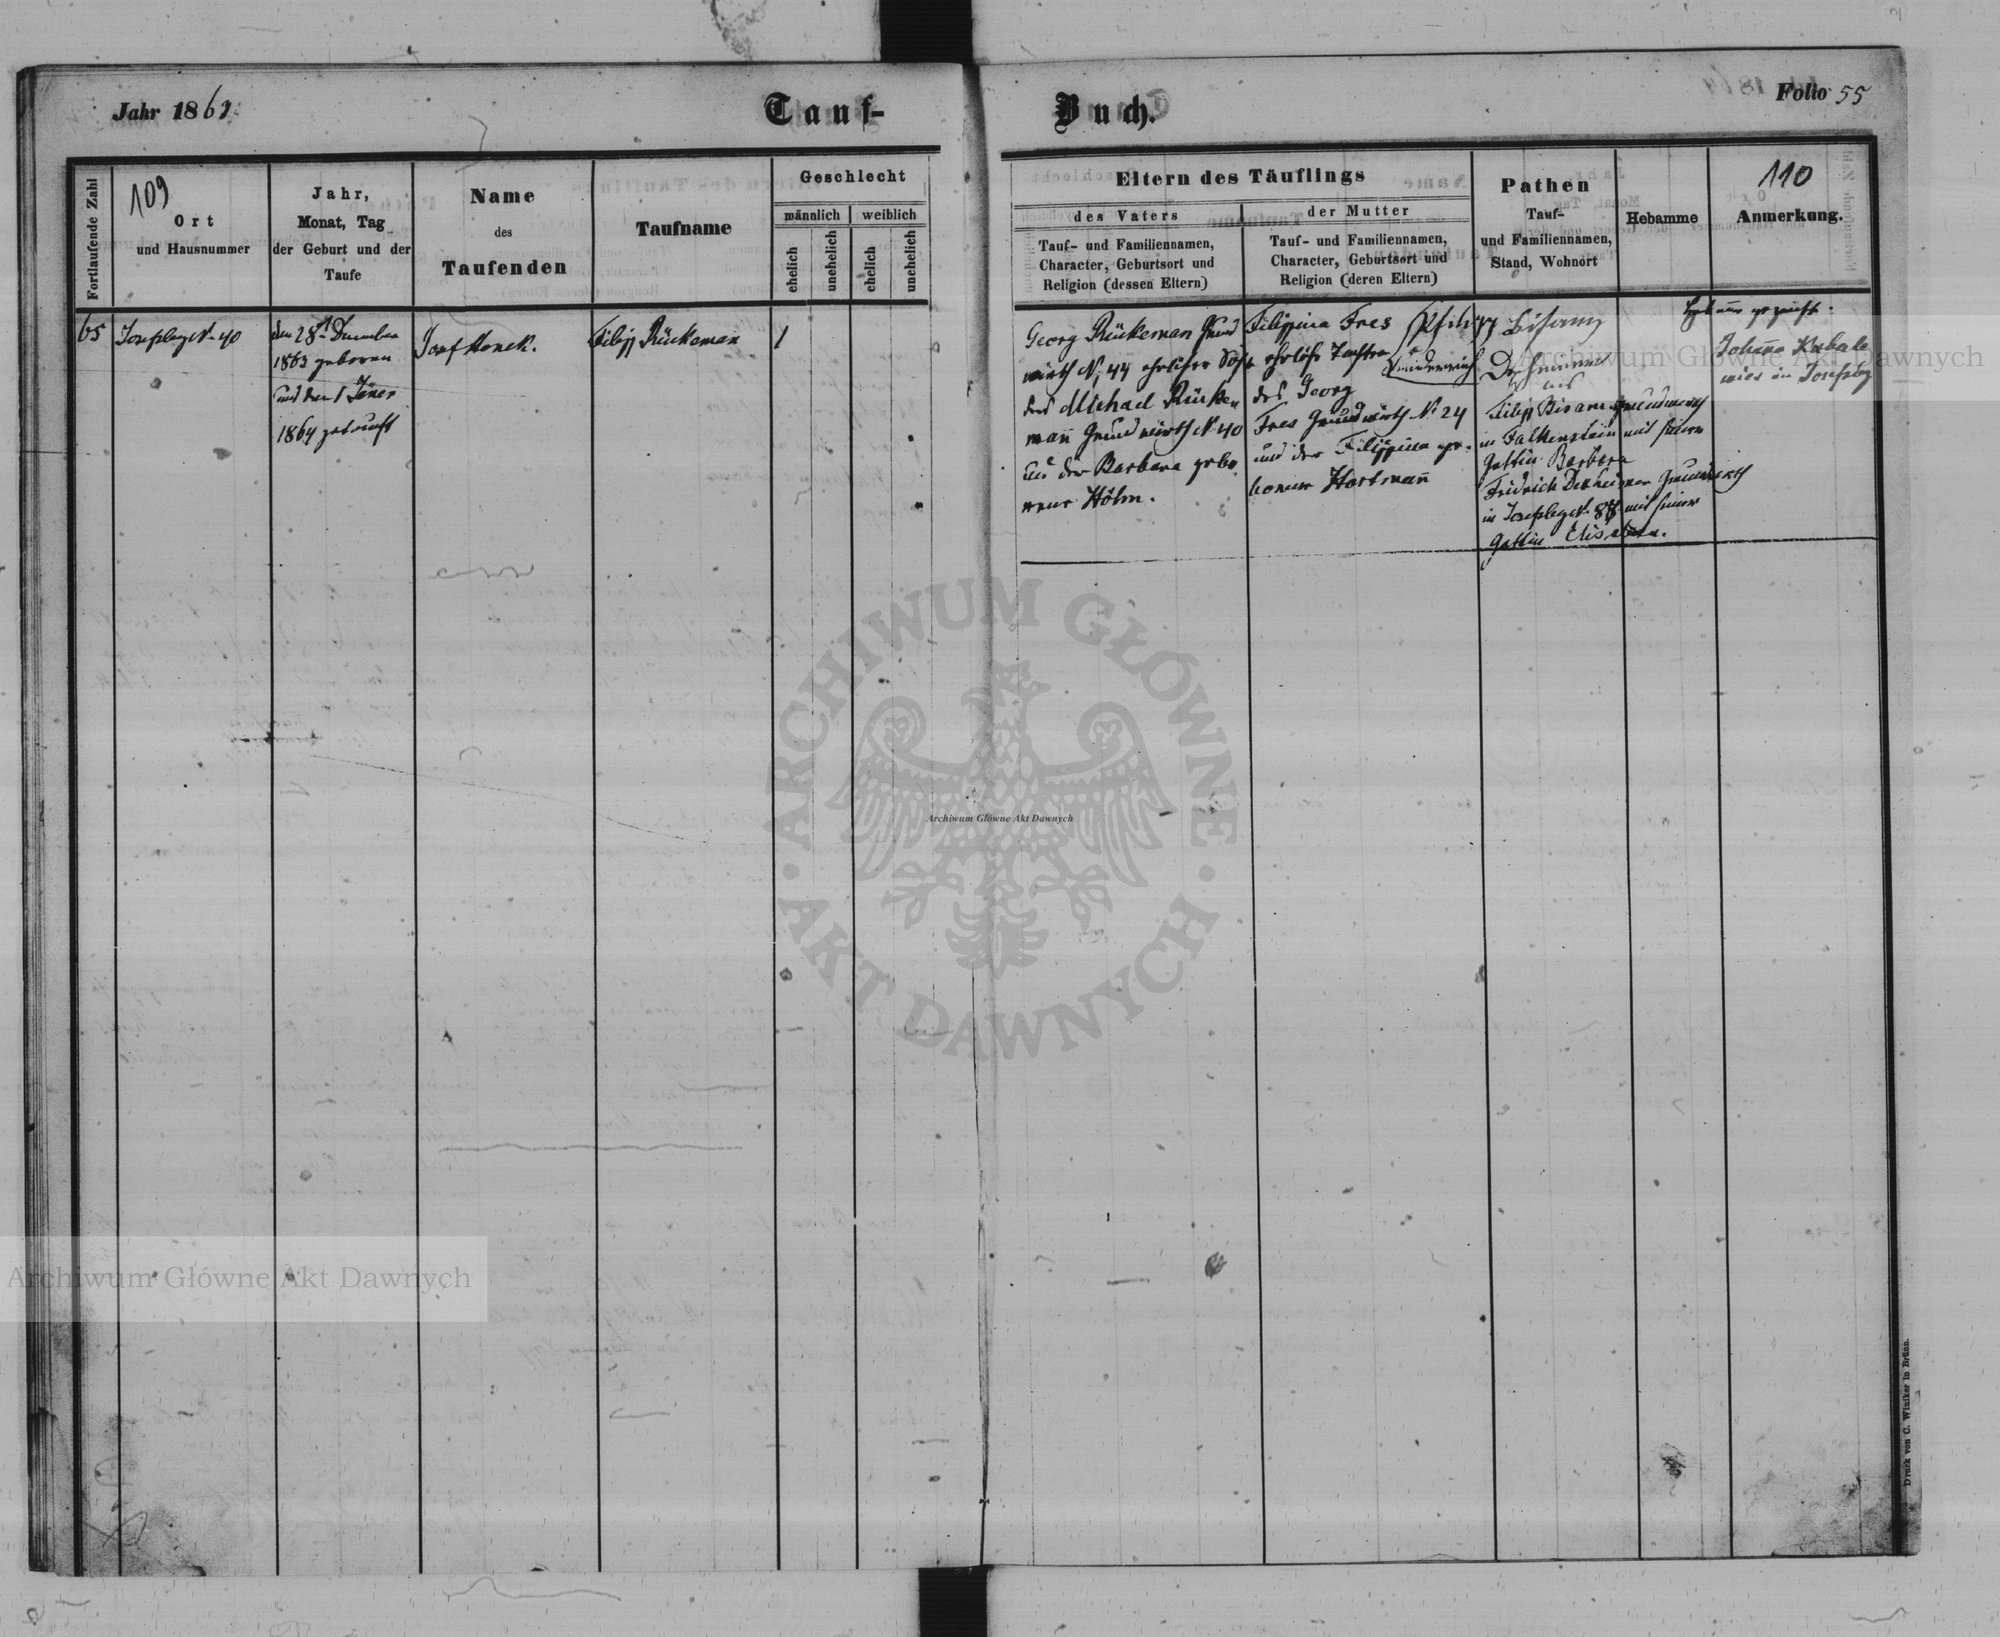 Jahr 1861.
Tauf-
Buch.
Folio 55
109
110
Fortlaufende Zahl
Ort
und Hausnummer
Jahr,
Monat, Tag
der Geburt und der
Taufe
Name
des
Taufenden
Taufname
Geschlecht
männlich
weiblich
ehelich
unehelich
ehelich
unehelich
Eltern des Täuflings
des Vaters
Tauf- und Familiennamen,
Character, Geburtsort und
Religion (dessen Eltern)
der Mutter
Tauf- und Familiennamen,
Character, Geburtsort und
Religion (deren Eltern)
Pathen
Tauf-
und Familiennamen,
Stand, Wohnort
Hebamme
Anmerkung.
65
Josefsberg N. 40
den 28t Dezember
1863 geboren
und den 1 Jäner
1864 getauft
Josef
Filipp Rückeman
1
Georg Rückeman Grund
wirth N. 44 ehelicher Sohn
des Michael Rücke
mañ Grundwirth N 40
und der Barbara gebo
rene Höhn.
Filippina Fres
eheliche Tochter
des Georg
Fres Grundwirth N. 24
und der Filippina ge-
borene Hartmañ
Filipp Bisanz Grundwirth
in Falkenstein mit seiner
Gattin Barbara
Fridrich Grundwirth
in Josefsberg N. 88 mit seiner
Gattin Elisabeta.
geprüft.
Johaña
in Josefsbg
ARCHIWUM GŁÓWNE AKT DAWNYCH
Archiwum Główne Akt Dawnych
Archiwum Główne Akt Dawnych
Archiwum Główne Akt Dawnych
Druck von C. Winiker in Brünn.